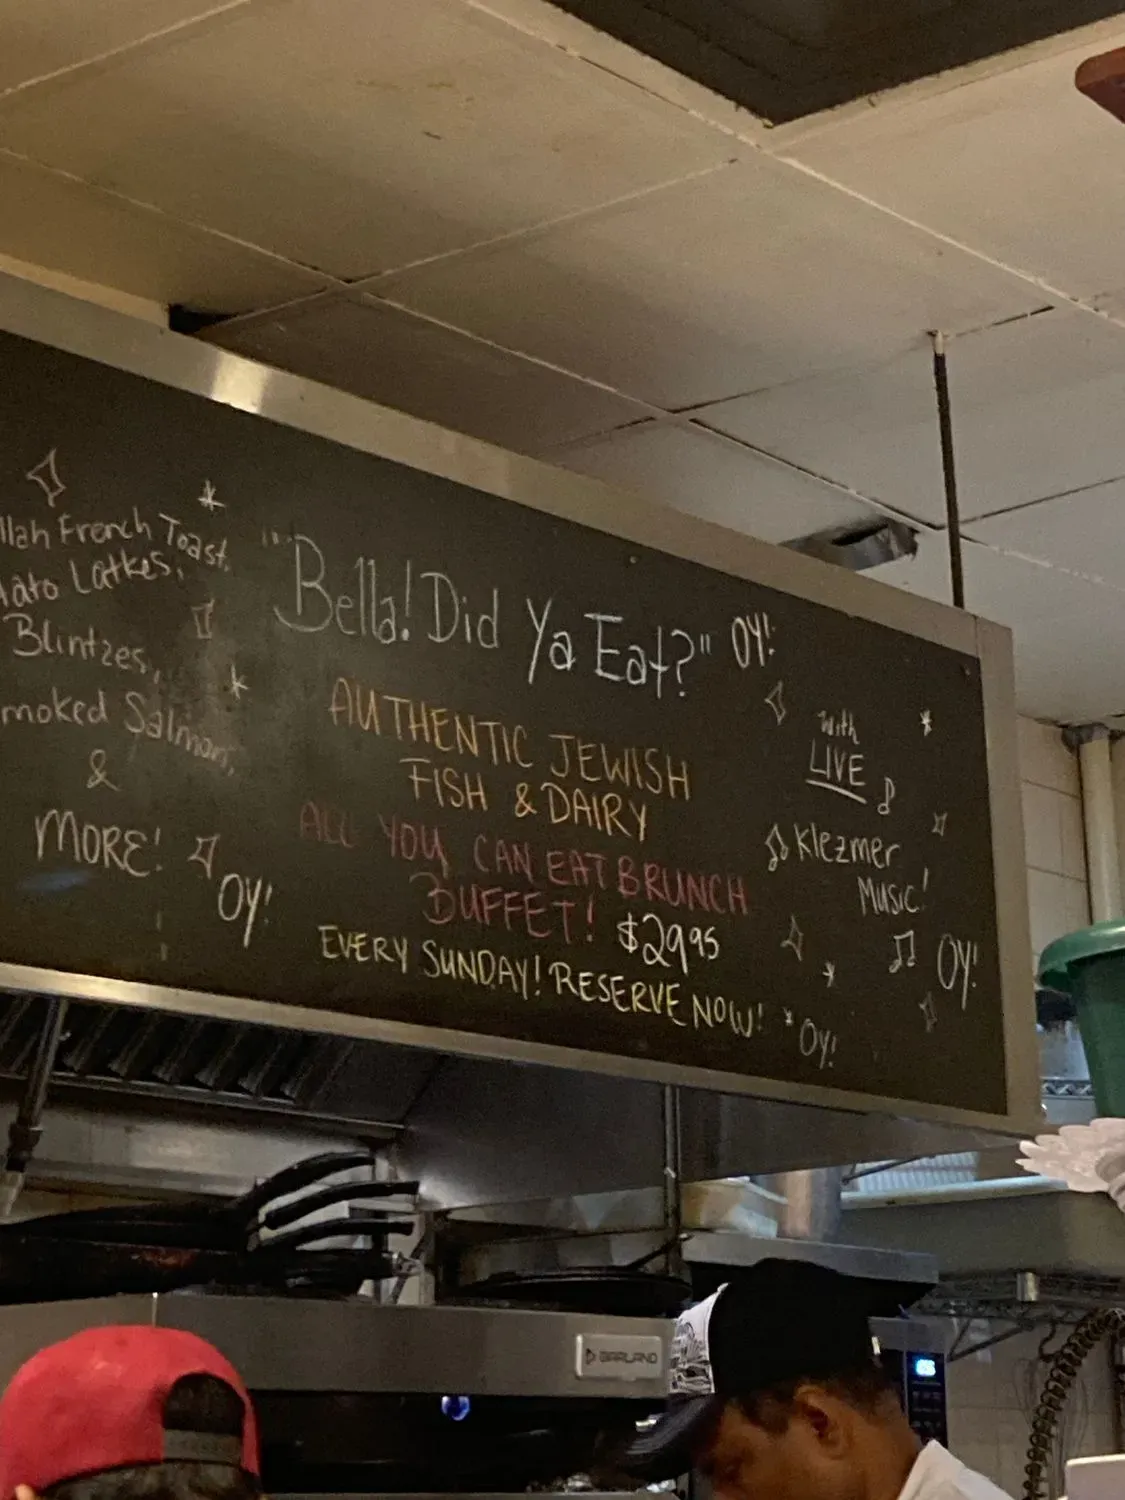 llah French Toast,
tato Latkes,
Blintzes,
moked Salmon,
&
MORE!
OY!
"Bella! Did Ya Eat?" OY!
AUTHENTIC JEWISH
FISH & DAIRY
ALL YOU CAN EAT BRUNCH
BUFFET! $29.95
EVERY SUNDAY! RESERVE NOW!
OY!
with
LIVE
Klezmer
Music!
OY!
GARLAND